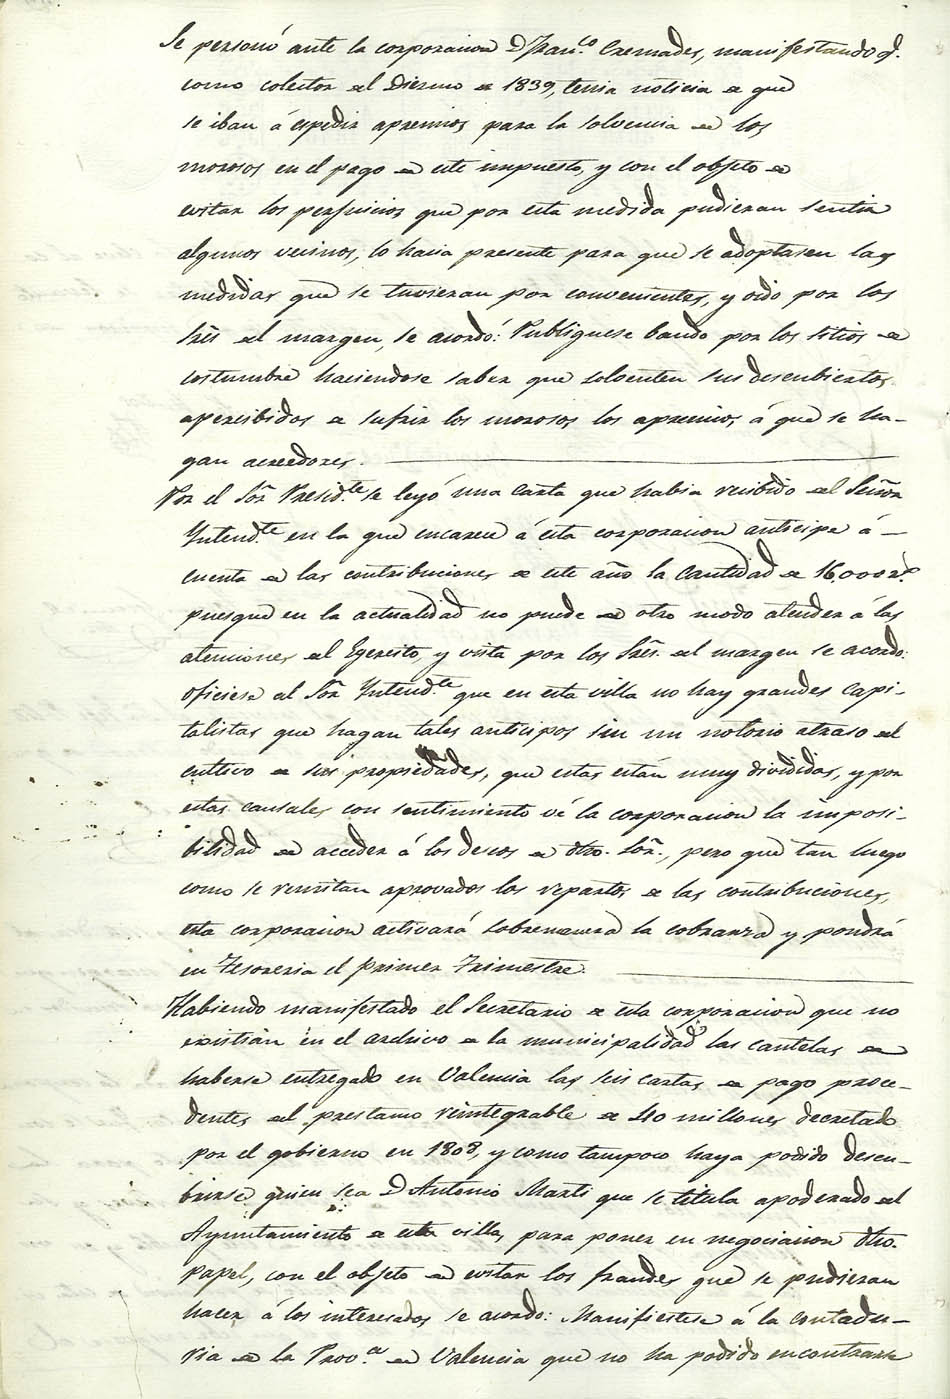 Se personó ante la corporacion D. Fran.co Cremades, manifestando q.
como colector del Diezmo de 1839, tenia noticia de que
se iban á espedir apremios para la solvencia de los
morosos en el pago de este impuesto, y con el objeto de
evitar los perjuicios que por esta medida pudieran sentir
algunos vecinos, lo hacia presente para que se adoptasen las
medidas que se tuvieran por convenientes, y oido por los
Sres. del margen, se acordó: Publiquese bando por los sitios de
costumbre haciendose saber que solventen sus descubiertos
apercibidos de sufrir los morosos los apremios á que se ha-
gan acreedores.
Por el Sor. Presid.te se leyó una carta que habia recibido del Señor
Yntend.te en la que encarece á esta corporacion anticipe á
cuenta de las contribuciones de este año la cantidad de 16,000 r.s
puesque en la actualidad no puede de otro modo atender á las
atenciones del Egercito, y vista por los Sres. del margen se acordó:
Oficiese al Sor. Yntend.te que en esta villa no hay grandes capi-
talistas que hagan tales anticipos sin un notorio atraso del
cultivo de sus propiedades, que estas están muy divididas, y por
estas causales con sentimiento vé la corporacion la imposi-
bilidad de acceder á los deseos de dho. Sor., pero que tan luego
como se remitan aprovados los repartos de las contribuciones,
esta corporacion activará sobremanera la cobranza y pondrá
en Tesoreria el primer Trimestre.
Habiendo manifestado el Secretario de esta corporacion que no
existian en el archivo de la municipalidad las cautelas de
haberse entregado en Valencia las seis cartas de pago proce-
dentes del prestamo reintegrable de 40 millones decretado
por el gobierno en 1808, y como tampoco haya podido descu-
brirse quien sea D. Antonio Marti que se titula apoderado del
Ayuntamiento de esta villa, para poner en negociacion dho.
papel, con el objeto de evitar los fraudes que se pudieran
hacer á los interesados se acordó: Manifiestese á la contadu-
ria de la Prov.a de Valencia que no ha podido encontrarse